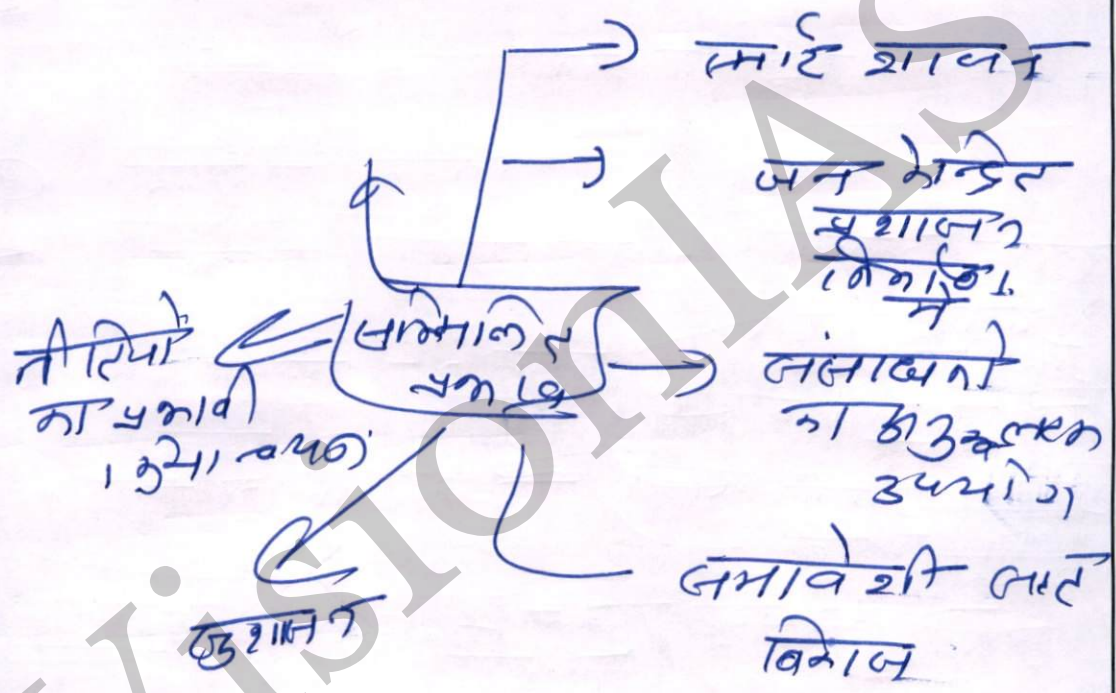 स्मार्ट शासन
जन केन्द्रित
प्रशासन
निर्माण
में
सम्मिलित
प्रभाव
नीतियों
का प्रभावी
क्रियान्वयन
संसाधनों
का अनुकूलतम
उपयोग
सुशासन
समावेशी सतत
विकास
VisionIAS